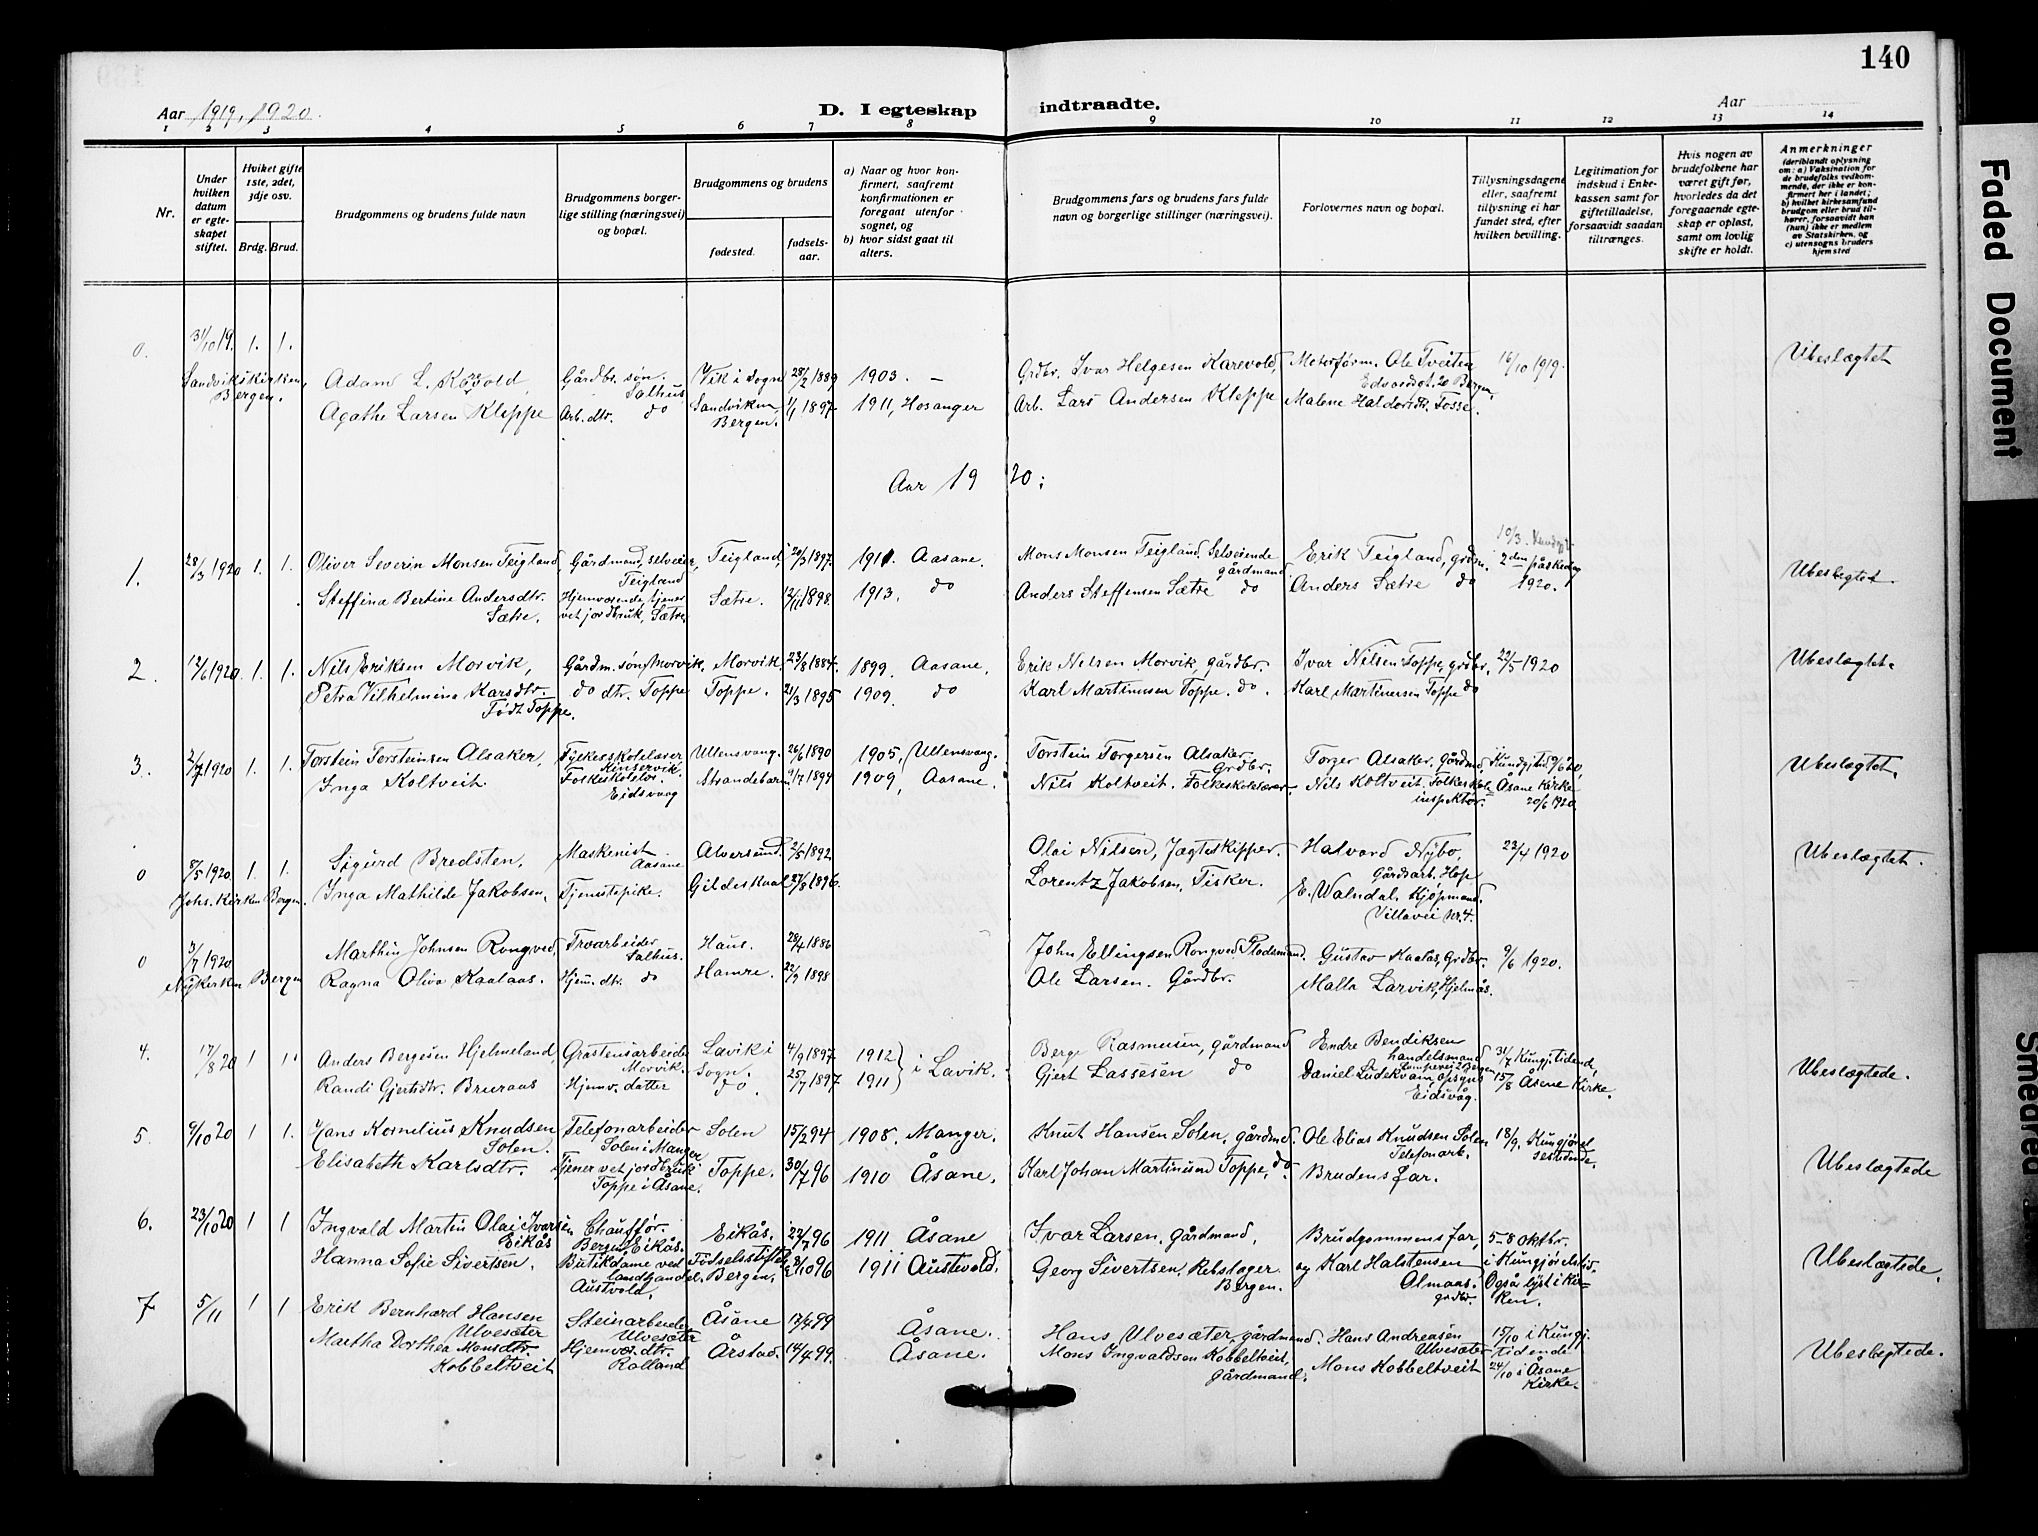 140
Aar 1919, 1920.
D. I egteskap indtraadte.
Aar
1 2 3 4 5 6 7 8 9 10 11 12 13 14
Nr.
Under hvilken datum er egteskapet stiftet.
Hvilket gifte 1ste, 2det, 3dje osv.
Brdg. Brud.
Brudgommens og brudens fulde navn
Brudgommens borgerlige stilling (næringsvei) og bopæl.
Brudgommens og brudens
fødested. fødselsaar.
a) Naar og hvor konfirmert, saafremt konfirmationen er foregaat utenfor sognet, og
b) hvor sidst gaat til alters.
Brudgommens fars og brudens fars fulde navn og borgerlige stillinger (næringsvei).
Forlovernes navn og bopæl.
Tillysningsdagene eller, saafremt tillysning ei har fundet sted, efter hvilken bevilling.
Legitimation for indskud i Enkekassen samt for giftetilladelse, forsaavidt saadan tiltrænges.
Hvis nogen av brudefolkene har været gift før, hvorledes da det foregaaende egteskap er opløst, samt om lovlig skifte er holdt.
Anmerkninger
(deriblandt oplysning om: a) Vaksination for de brudefolks vedkommende, der ikke er konfirmert her i landet; b) hvilket kirkesamfund brudgom eller brud tilhører, forsaavidt han (hun) ikke er medlem av Statskirken, og c) utensogns bruders hjemsted
0. 31/10 19. 1. 1.
Sandvikskirken, Bergen.
Adam L. Kårevold, Gårdbr. søn. Salhus Vik i Sogn 28/2 1889 1903. — Grdbr. Ivar Helgesen Karevold, Motorførm. Ole Tveiten Edvardsgt. 20 Bergen. 16/10 1919. Ubeslægtet
Agathe Larsen Kleppe Arb. dtr. do Sandviken, Bergen. 1/1 1897 1911, Hosanger Arb. Lars Andersen Kleppe Malene Haldorsdtr. Fosse.
Aar 1920:
1. 28/3 1920 1. 1. Oliver Severin Monsen Teigland, Gårdmand, selveier, Teigland Teigland, 20/3 1897. 1911. Aasane. Mons Monsen Teigland, Selveiende gårdmand Erik Teigland, grdm. 10/3. 2den påskedag 1920. Ubeslegtet.
Steffina Bertine Andersdtr. Sætre. Hjemværende, tjener vet jordbruk, Sætre. Sætre. 12/11 1898. 1913. do Anders Steffensen Sætre do Anders Sætre do
2. 12/6 1920. 1. 1. Nils Eriksen Morvik, Gårdm. søn, Morvik. Morvik 23/8 1884. 1899. Aasane. Erik Nelsen Morvik, gårdbr. Ivar Nilsen Toppe, grdbr. 22/5 1920 Ubeslægtet.
Petra Vilhelmina Karsdtr. Født Toppe. do dtr. Toppe Toppe. 21/3 1895 1909. do Karl Martinusen Toppe. do. Karl Martinusen Toppe do
3. 2/7 1920 1. 1. Torstein Torsteinsen Alsaker, Fylkesskolelærer Kinservik. Ullensvang. 26/6 1890 1905, Ullensvang. Torstein Torgersen Alsaker Grdbr. Torger Alsaker, Gårdmd, Kundgj. tid. 9/6 20, Ubeslægtet.
Inga Koltveit. Folkeskolelær. Eidsvaag Strandebarm 9/7 1894 1909, Aasane. Nils Koltveit. Folkeskolelærer. Nils Koltveit. Folkeskoleinspektør. Åsane Kirke 20/6 1920.
0 8/5 1920. 1. 1.
Johs. Kirken Bergen.
Sigurd Bredsten. Maskenist Aasane Alversund. 2/5 1892 Olai Nilsen, Jægteskipper. Halvard Nybø, Gårdsarb. Hop 23/4 1920 Ubeslægtet.
Inga Mathilde Jakobsen, Tjenestepike. Gildeskaal 27/8 1896. Lorentz Jakobsen, Fisker. E. Walndal, Kjøpmand. Villavei nr. 4.
0 3/7 1920
Nykirken Bergen
Marthin Johnsen Rongved, Troarbeider Salhus. Haus. 28/4 1886 John Ellingsen Rongved, Pladsmand. Gustav Kaalås, Grdbr. 9/6 1920.
Ragna Oliva Kaalaas. Hjem. dtr. do Hamre. 22/9 1898 Ole Larsen. Gårdbr. Malla Larvik, Hjelmås.
4. 17/8 20 1 1. Anders Bergesen Hjelmeland, Gråstensarbeider Morvik. Lavik i Sogn. 4/9 1897 1912 i Lavik. Berge Rasmusen, gårdmand Endre Bendiksen handelsmand Bergen 31/7 Kungj. tidend, Ubeslægtede.
Randi Gjertsdtr. Bruraas Hjemv. datter do. 25/7 1897 1911 Gjert Lassesen do Daniel Ludekvam, opsyns Eidsvåg. 15/8 Åsane Kirke.
5. 9/10 20 1 1. Hans Kornelius Knudsen Solen. Telefonarbeider Solen i Manger Solen 15/2 94 1908. Manger. Knut Hansen Solen, gårdmd. Ole Elias Knudsen Solen Telefonarb. 18/9. Kungjørelsestidende. Ubeslægtede
Elisabeth Karlsdtr. Tjener vet jordbruk Toppe i Åsane. Toppe. 30/7 96 1910 Åsane. Karl Johan Martinusen Toppe, do. Brudens far.
6. 23/10 20 1 1 Ingvald Martin Olai Ivarsen Eikås Chaufför. Bergen Eikås. Eikås. 22/7 96 1911 Åsane Ivar Larsen, gårdmand, Brudgommens far, 5-8 oktbr. Ubeslægtede.
Hanna Sofie Sivertsen. Butikdame ved landhandel. Austvold. Födselsstiftels. Bergen. 8/10 96 1911 Austevold. Georg Sivertsen, Rebslager Bergen. og Karl Halstensen Olmaas. grdbr. i Kungjørelstid. Også lyst i Kirken.
7 5/11 1 1 Erik Bernhard Hansen Ulvesæter Steinarbeider Ulvesæter Åsane 17/4 99 Åsane. Hans Ulvesæter, gårdmand. Hans Andreasen Ulvesæter 15/10 i Kungj. tidende Ubeslegtede.
Martha Dorthea Monsdtr. Kobbeltveit Hjemv. dtr. Rolland Årstad. 14/4 99. Åsane. Mons Ingvaldsen Kobbeltveit, gårdmand. Mons Kobbeltveit 24/10 i Åsane Kirke.
Faded Document
Smeared